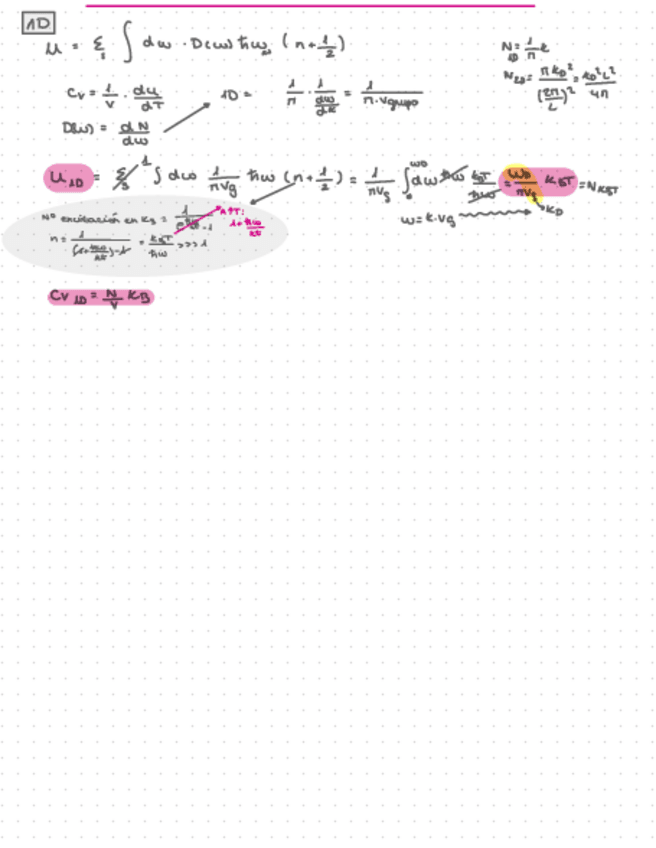 1D
U = Σ_s ∫ dω · D(ω) ħω_s (n + 1/2)
N_1D = 1/π k
N_2D = πk_D²/(2π/L)² = k_D²L²/4π
C_V = 1/V · du/dT
1D = 1/π · 1/(dω/dk) = 1/(π·vgrupo)
D(ω) = dN/dω
U_1D = Σ_s ∫ dω 1/(πv_g) ħω (n + 1/2) = 1/(πv_g) ∫_0^ωD dω ħω k_BT/ħω = ω_D/(πv_g) k_BT = N k_BT
ω = k·v_g
k_D
Nº excitación en k_s = 1/(e^(ħω/kT) - 1)
A↑T:
1 + ħω/kT
n = 1/((1 + ħω/kT) - 1) = k_BT/ħω >>> 1
C_V 1D = N/V k_B